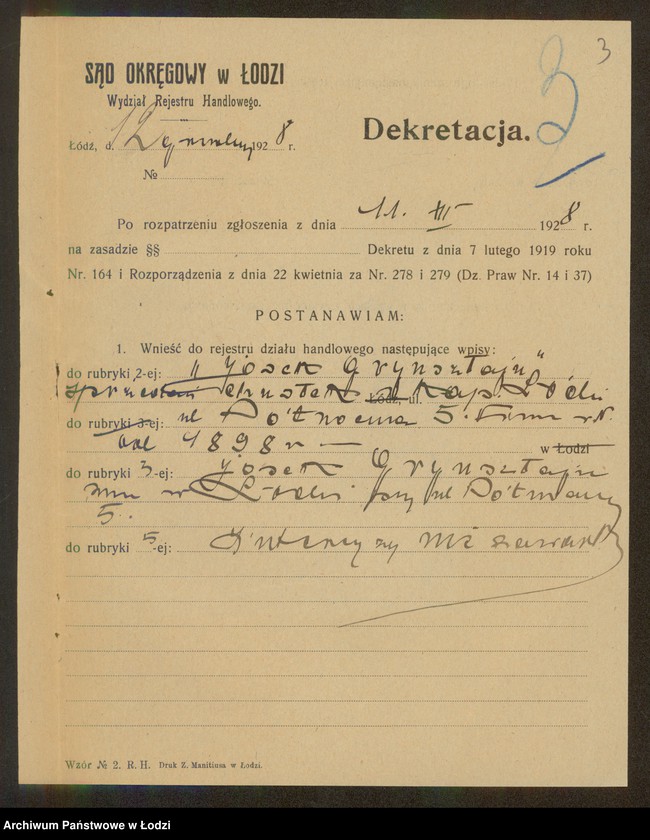 3
3
SĄD OKRĘGOWY w ŁODZI
Wydział Rejestru Handlowego.
Dekretacja.
Łódź, d. 12 1928 r.
№
Po rozpatrzeniu zgłoszenia z dnia 11. III 1928 r.
na zasadzie §§ Dekretu z dnia 7 lutego 1919 roku
Nr. 164 i Rozporządzenia z dnia 22 kwietnia za Nr. 278 i 279 (Dz. Praw Nr. 14 i 37)
POSTANAWIAM:
1. Wnieść do rejestru działu handlowego następujące wpisy:
do rubryki 2-ej: „Josek Grynsztajn”
chustek Łódź, ul. Łódź
do rubryki 3-ej: ul Północna 5. Firma
od 1898 r — w Łodzi
do rubryki 3-ej: Josek Grynsztajn
w Łodzi przy ul Północnej
5.
do rubryki 5-ej: Intercyzy nie zawarł
Wzór № 2. R. H. Druk Z. Manitius w Łodzi.
Archiwum Państwowe w Łodzi